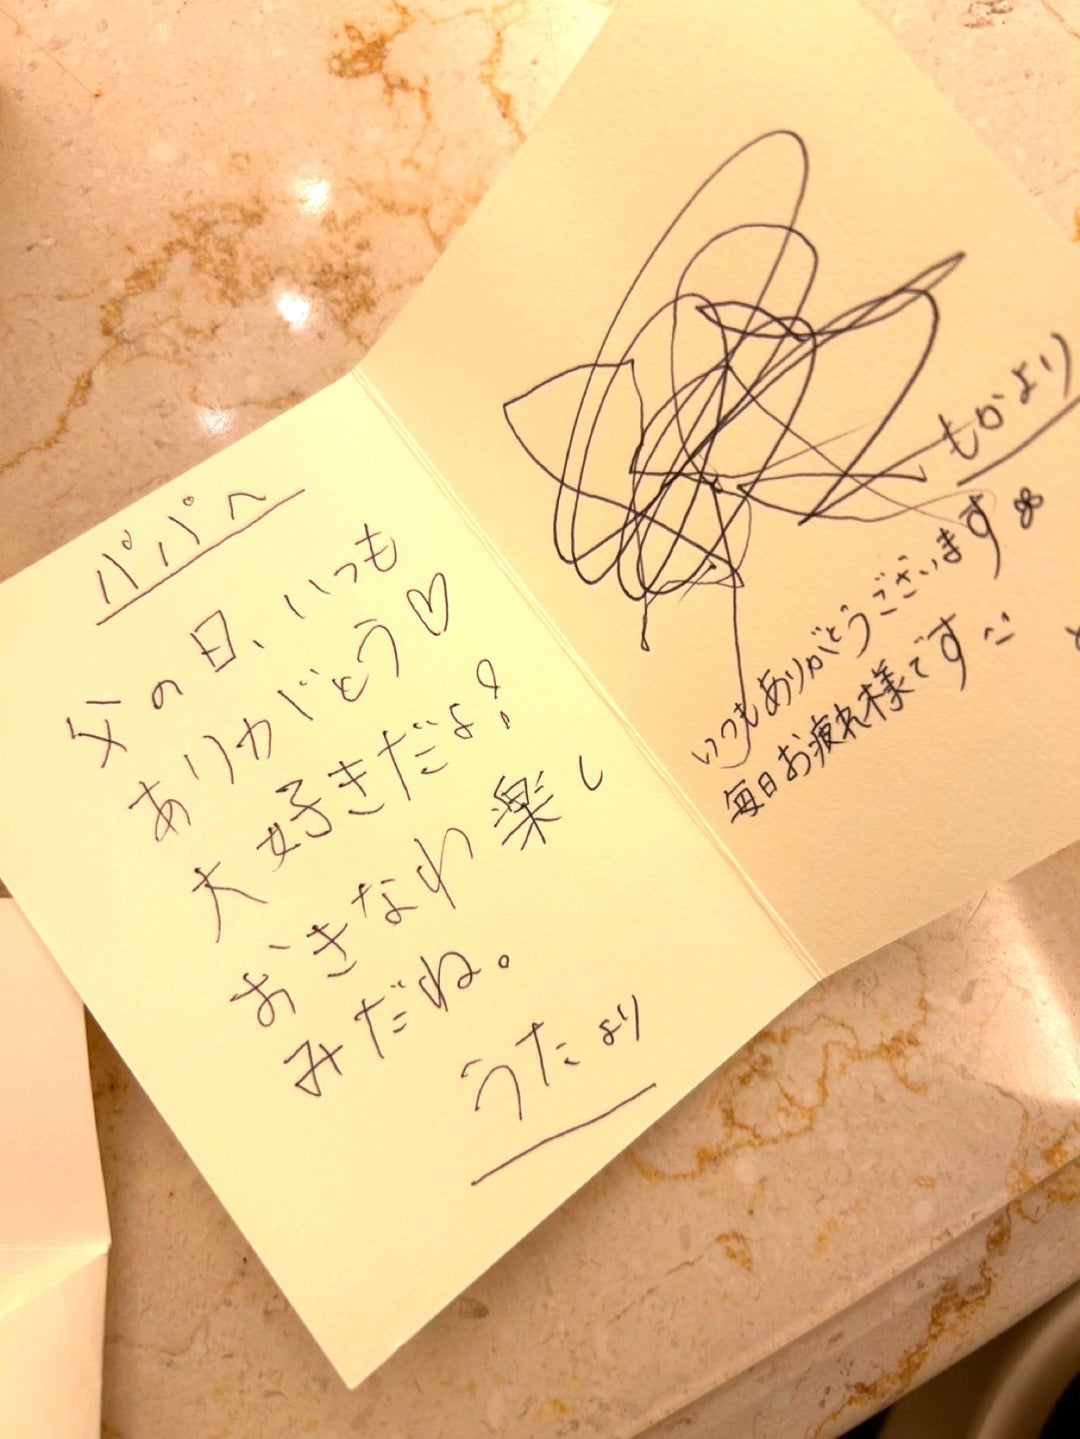 パパへ
父の日、いつも
ありがとう♡
大好きだよ!
おきなわ楽し
みだね。
うたより
もかより
いつもありがとうございます
毎日お疲れ様です